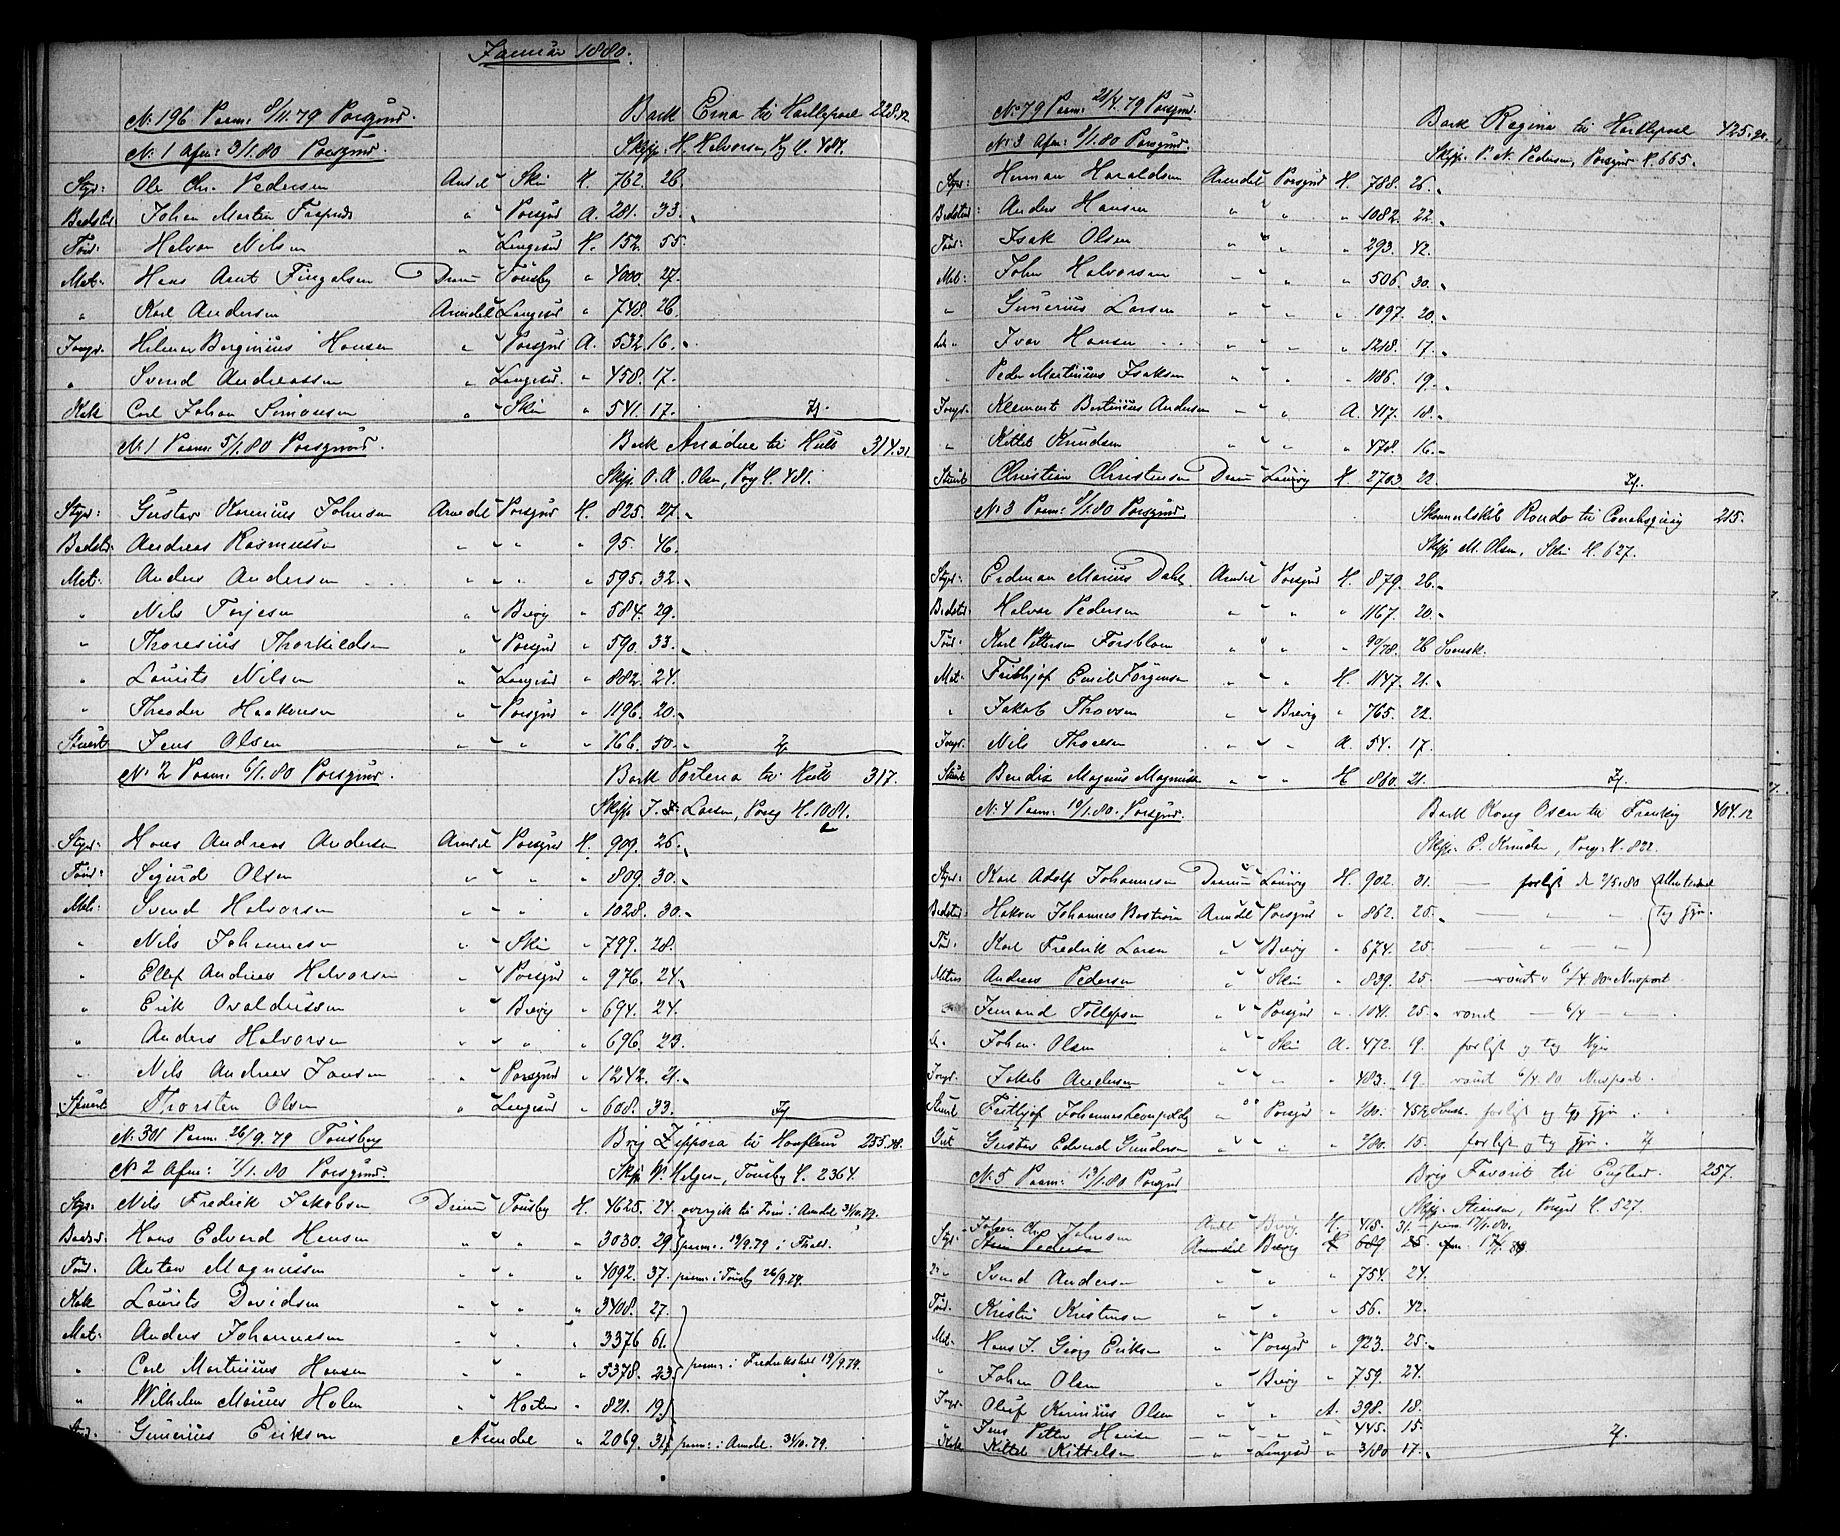 Januar 1880.
No 196 Paam: 8/11.79 Porsgrund. Bark Erna til Hartlepool 228.12
No 1 Afm: 3/1.80 Porsgrund. Skipp. H. Halvorsen, Prg H. 484.
Styr: Ole Chr. Pedersen Arndel " Skien H. 762. 26.
Bedstd: Johan Martin " Porsgrund A. 281. 33.
Tønd: Halvor Nilsen " " Langesund H. 152. 55.
Mat: Hans Arnt Dram " Tønsby " 4000. 27.
" Karl Andersen Arendal " Langesund " 748. 26.
Jungm. Hilmar Berginius Hansen " " Porsgrund A. 532. 16.
" Svend Andreassen " " Langesund " 458. 17.
Kok Carl Johan Simonsen " " Skien " 541. 17.
No 1 Paam: 5/1.80 Porsgrund. Bark Ariadne til Hull 314.31
Skipp. O. A. Olsen, Prg H. 481.
Styr: Gustav Karinius Johnsen Arndel " Porsgrund H. 825. 27.
Bedstd: Andreas Rasmussen " " " " 95. 46.
Mat: Anders Andersen " " " " 595. 32.
" Nils Torjesen " " Brevig " 584. 29.
" Thoresius Thorkildsen " " Porsgrund " 590. 33.
" Lauritz Nilsen " " Langesund " 882. 24.
" Theodor Haakonsen " " Porsgrund " 1196. 20.
Stuert Jens Olsen " " " " 166. 50.
No 2 Paam: 6/1.80 Porsgrund. Bark Portena til Hull 317.
Skipp. J. F. Larsen, Porsg H. 1081.
Styr: Hans Andreas Andersen Arndel " Porsgrund H. 909. 26.
Tønd: Sigurd Olsen " " " " 809. 30.
Mat: Svend Halvorsen " " " " 1028. 30.
" Nils Johannesen " " Skien " 799. 28.
" Ellef Andreas Halvorsen " " Porsgrund " 976. 24.
" Erik Osvaldrissen " " Brevig " 694. 24.
" Anders Halvorsen " " " " 696. 23.
" Nils Andreas Jansen " " Porsgrund " 1242. 21.
Stuert Thorsten Olsen " " Langesund " 608. 33.
No 301 Paam: 26/9.79 Tønsberg Brig Zippora til Honfleur 255.
No 2 Afm: 7/1.80 Porsgrund. Skipp. W. Helgesen, Tønsby H. 2364.
Styr: Nils Fredrik Jakobsen Dram " Tønsby H. 4625. 24. i Arndel 31/10.79.
Bedstd: Hans Edvard Hansen " " " " 3030. 29. paam: 19/9.79 i
Tønd: Anton Magnussen " " " " 4092. 37. paam: i Tønsby 26/9.79.
Kok Lauritz Davidsen " " " " 3408. 27.
Mat: Anders Johannesen " " " " 3376 61.
" Carl Martinius Hansen " " " " 5378. 23. paam: i Frederikshald 19/9.79.
" Wilhelm Marius Holm " " Horten " 821. 19.
Gunerius Eriksen Arendal " 2069. 31. paam: i Arndel. 31/10.79.
No 79 Paam: 21/4.79 Porsgrund. Bark Regina til Hartlepool 425.
No 3 Afm: 8/1.80 Porsgrund. Skipp. P. N. Pedersen, Porsgrund H. 665.
Styr: Herman Haraldsen Arendel Porsgrund H. 788. 26.
Bedstd: Anders Hansen " " " " 1082. 22.
Tønd: Isak Olsen " " " " 293. 42.
Mat: John Halvorsen " " " " 506. 30.
" Gunerius Larsen " " " " 1097. 20.
Lt " Ivar Hansen " " " " 1218. 17.
" Peder Martinius Isaksen " " " " 1186. 19.
Jungm. Klement Bertinius Andersen " " " A. 417. 18.
" Kittil Knudsen " " " " 478. 16.
Stuert Christian Christensen Dram " Laurvig H. 2703 22.
No 3 Paam: 8/1.80 Porsgrund. Skonnertskib Rondo til 215.
Skipp. M. Olsen, Skien H. 627.
Styr: Erdman Marius Dahl Arndel " Porsgrund H. 879. 26.
Bedstd: Halvor Pedersen " " " " 1167. 20.
Tønd: Karl Pettersen Forsblom " " " 90/78. 26 Svensk.
Mat: Frithjof Emil Jørgensen " " " H. 1147. 21.
" Jakob Thorsen " " Brevig " 765. 22.
Jungm. Nils Thorsen " " " A. 54. 17.
Stuert Bendix Magnus Magnussen " " " H. 860. 21.
No 4 Paam: 10/1.80. Porsgrund. Bark Kong Oscar til 404.12
Skipp. E. Knudsen, Porsg. H. 822.
Styr: Karl Adolf Johannesen Dram " Laurvig H. 902. 31. — forligt d 2/5.80
Bedstd: Halvor Johannes Bostrøm Arndel " Porsgrund " 862. 25. — " — " —
Tønd: Karl Fredrik Larsen " " Brevig " 674. 25. — " — " —
Andreas Pedersen " " Skien " 839. 25. — rømt " 6/4.80 Newport
Tollefsen " " Porsgrund " 1041. 25. rømt — 6/4 — " —
Johan Olsen " " Skien A. 472. 19. forligt og tog Hyre
Jungm. Jakob Andersen " " " " 483. 19. rømt 6/4.80 Newport.
Stuert Frithjof Johannes " " Porsgrund " 1/80. 45 Svensk. forligt og tog Hyre
Gut Gustav Edvard Gundersen " " " " 2/80. 15. forligt og tog Hyre.
No 5 Paam: 12/1.80 Porsgrund Brig Favorit til England. 257.
Skipp. Steensen, Porsgrund H. 527.
Johan Chr. Johnsen Arndel " Brevig H. 415. 31. paam: 17/1.80.
Styr. Stian Pedersen Arendal Brevig H 689 25
Svend Andersen " " " " 754. 24.
Tønd: Kristen Kristensen " " " " 56. 42.
Mat: Hans J. Georg Eriksen " " Porsgrund " 923. 25.
" Johan Olsen " " Brevig " 759. 24.
Jungm. Oluf Karinius Olsen " " " A. 398. 18.
" Jens Petter Hansen " " " " 445. 15.
Kok Kittel Kittelsen " " Langesund " 3/80 17.